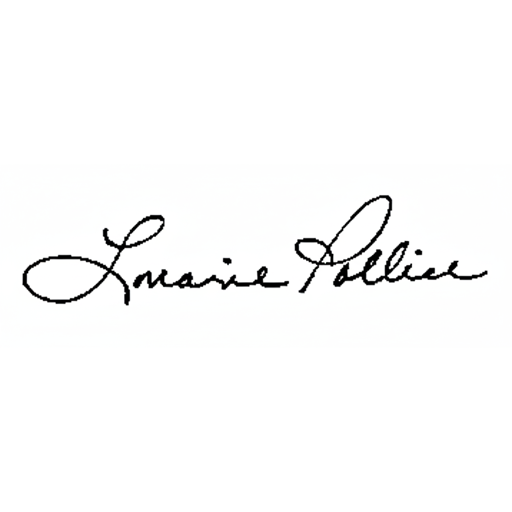 Lorraine Pollice